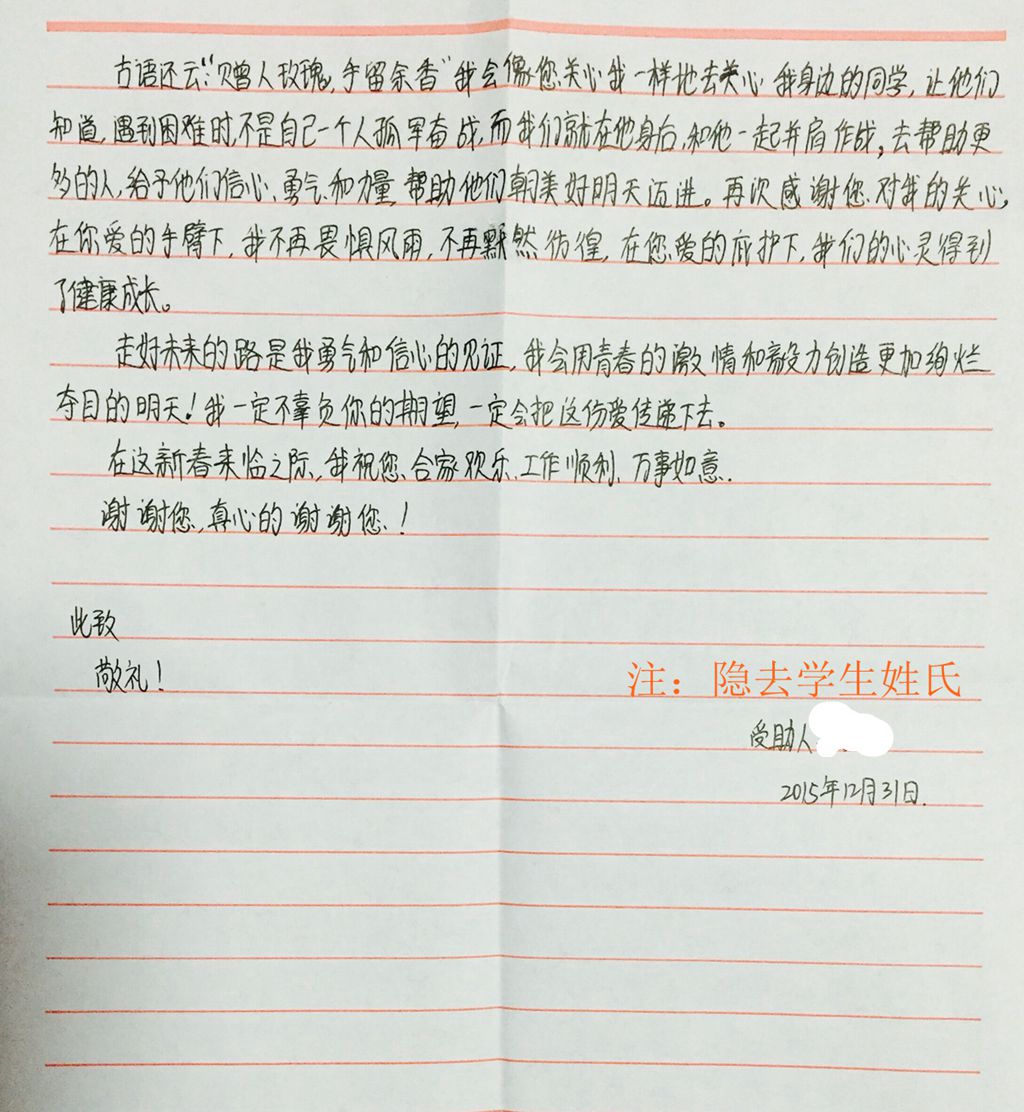 古语还云:“赠人玫瑰,手留余香”我会像您关心我一样地去关心我身边的同学,让他们
知道,遇到困难时,不是自己一个人孤军奋战,而我们就在他身后,和他一起并肩作战,去帮助更
多的人,给予他们信心、勇气和力量,帮助他们朝美好明天迈进。再次感谢您对我的关心,
在你爱的手臂下,我不再畏惧风雨,不再黯然彷徨,在您爱的庇护下,我们的心灵得到
了健康成长。
走好未来的路是我勇气和信心的见证,我会用青春的激情和毅力创造更加绚烂
夺目的明天!我一定不辜负你的期望,一定会把这份爱传递下去。
在这新春来临之际,我祝您合家欢乐、工作顺利、万事如意.
谢谢您,真心的谢谢您!
此致
敬礼!
注：隐去学生姓氏
受助人
2015年12月31日.